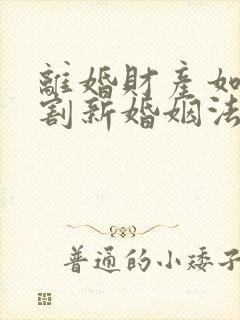 離婚財產如
割新婚姻法
普通的小矮子